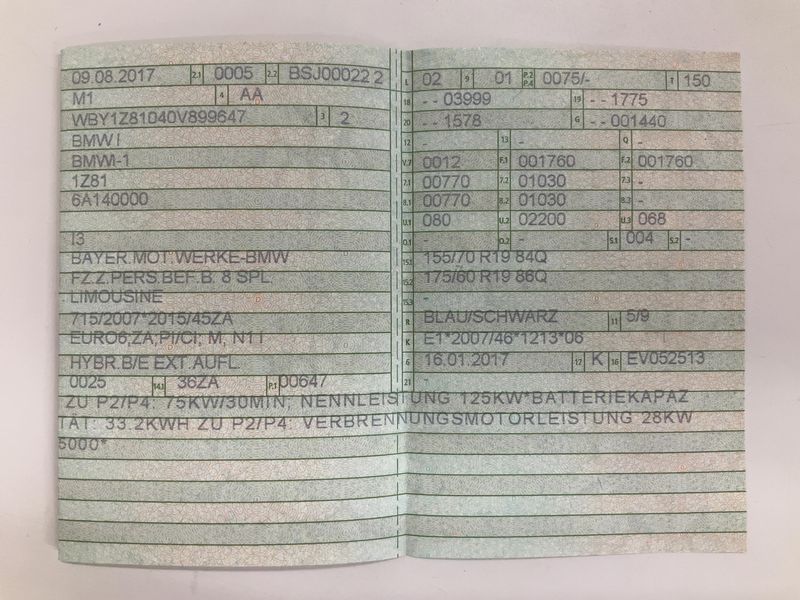 09.08.2017 2.1 0005 2.2 BSJ00022 2
M1 4 AA
WBY1Z81040V899647 3 2
BMW I
BMWI-1
1Z81
6A140000
I3
BAYER.MOT.WERKE-BMW
FZ.Z.PERS.BEF.B. 8 SPL.
LIMOUSINE
715/2007*2015/45ZA
EURO6;ZA;PI/CI; M, N1 I
HYBR.B/E EXT.AUFL.
0025 14.1 36ZA P.1 00647
L 02 9 01 P.2 P.4 0075/- T 150
18 - - 03999 19 - - 1775
20 - - 1578 G - - 001440
12 - 13 - Q -
V.7 0012 F.1 001760 F.2 001760
7.1 00770 7.2 01030 7.3 -
8.1 00770 8.2 01030 8.3 -
U.1 080 U.2 02200 U.3 068
O.1 - O.2 - S.1 004 S.2 -
15.1 155/70 R19 84Q
15.2 175/60 R19 86Q
15.3 -
R BLAU/SCHWARZ 11 5/9
K E1*2007/46*1213*06
6 16.01.2017 17 K 16 EV052513
21 -
ZU P2/P4: 75KW/30MIN; NENNLEISTUNG 125KW*BATTERIEKAPAZ
TÄT: 33.2KWH ZU P2/P4: VERBRENNUNGSMOTORLEISTUNG 28KW
5000*